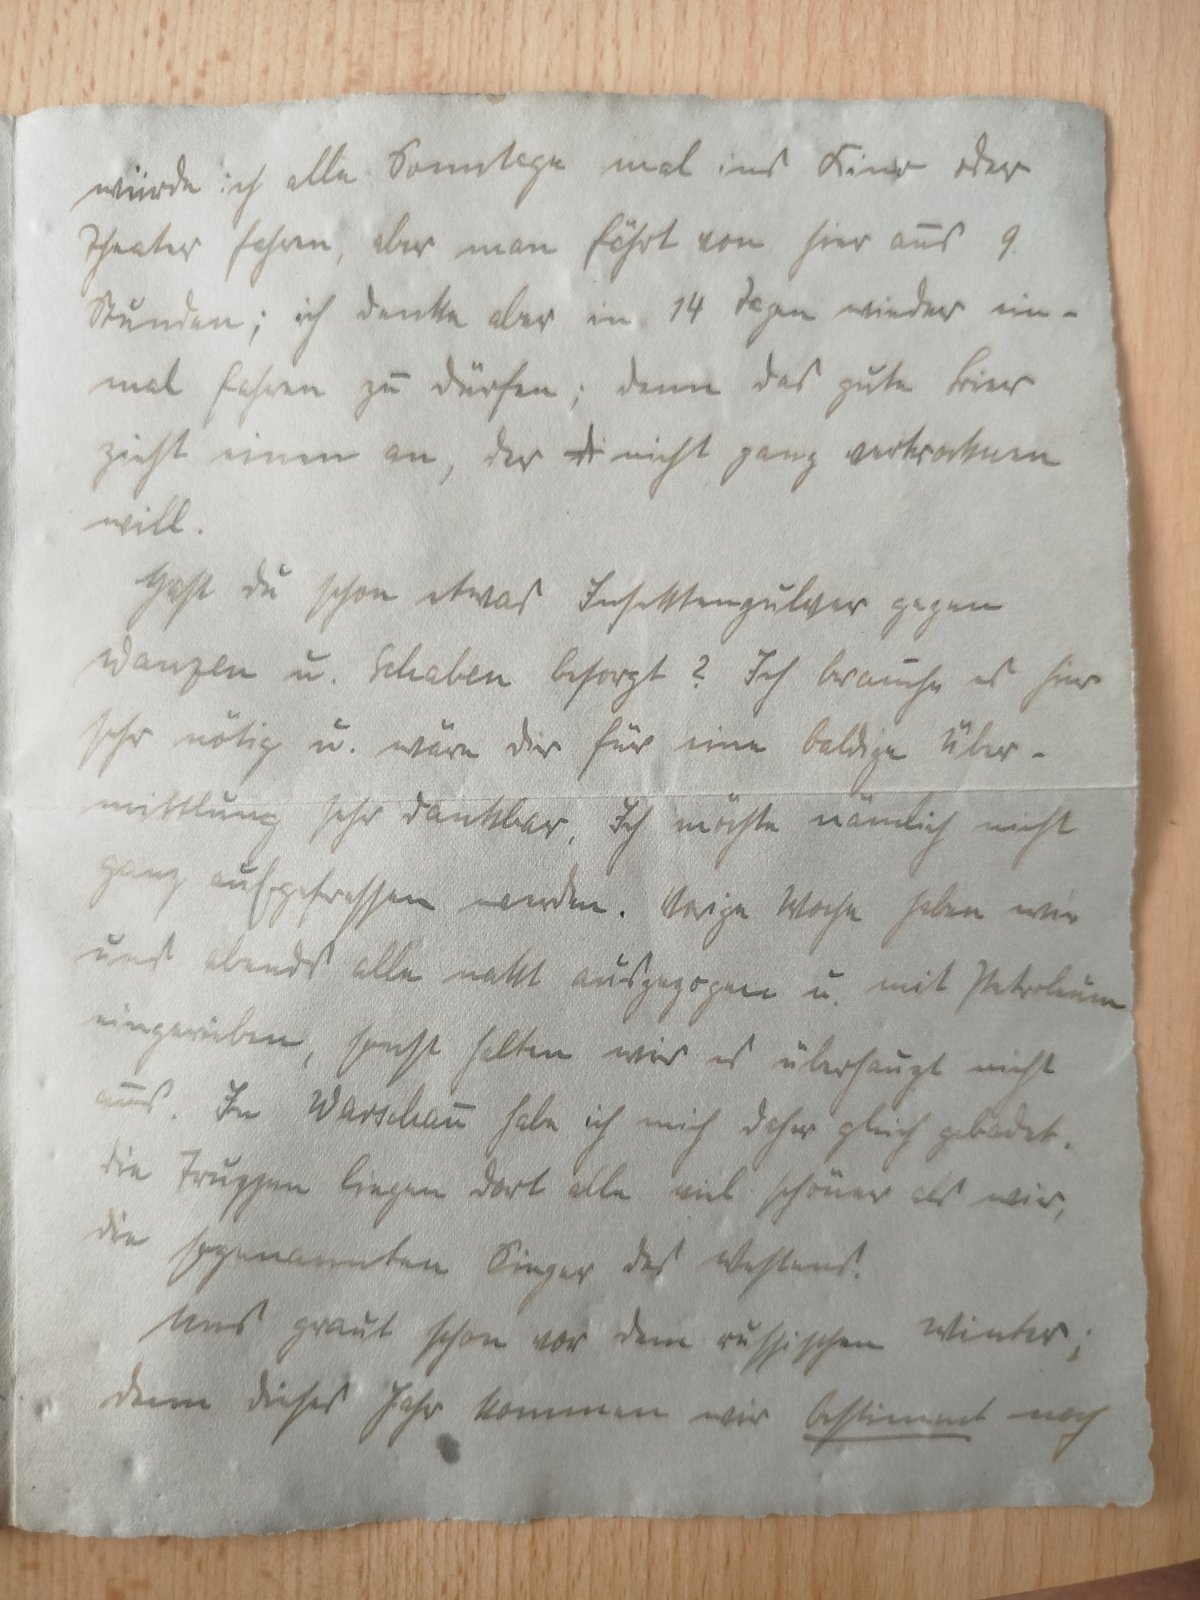 würde ich alle Sonntage mal ins Kino oder
Theater fahren, aber man fährt von hier aus 9
Stunden; ich denke aber in 14 Tagen wieder ein-
mal fahren zu dürfen; denn das gute Bier
zieht einen an, der nicht ganz vertrocknen
will.
Hast du schon etwas Insektenpulver gegen
Wanzen u. Schaben besorgt? Ich brauche es hier
sehr nötig u. wäre dir für eine baldige Über-
mittlung sehr dankbar. Ich möchte nämlich nicht
ganz aufgefressen werden. Vorige Woche haben wir
uns abends alle nakt ausgezogen u. mit Petroleum
eingerieben, sonst halten wir es überhaupt nicht
aus. In Warschau habe ich mich daher gleich gebadet.
die Truppen liegen dort alle viel schöner als wir,
die sogenannten Sieger des Westens.
Uns graut schon vor dem russischen Winter;
denn dieses Jahr kommen wir bestimmt noch